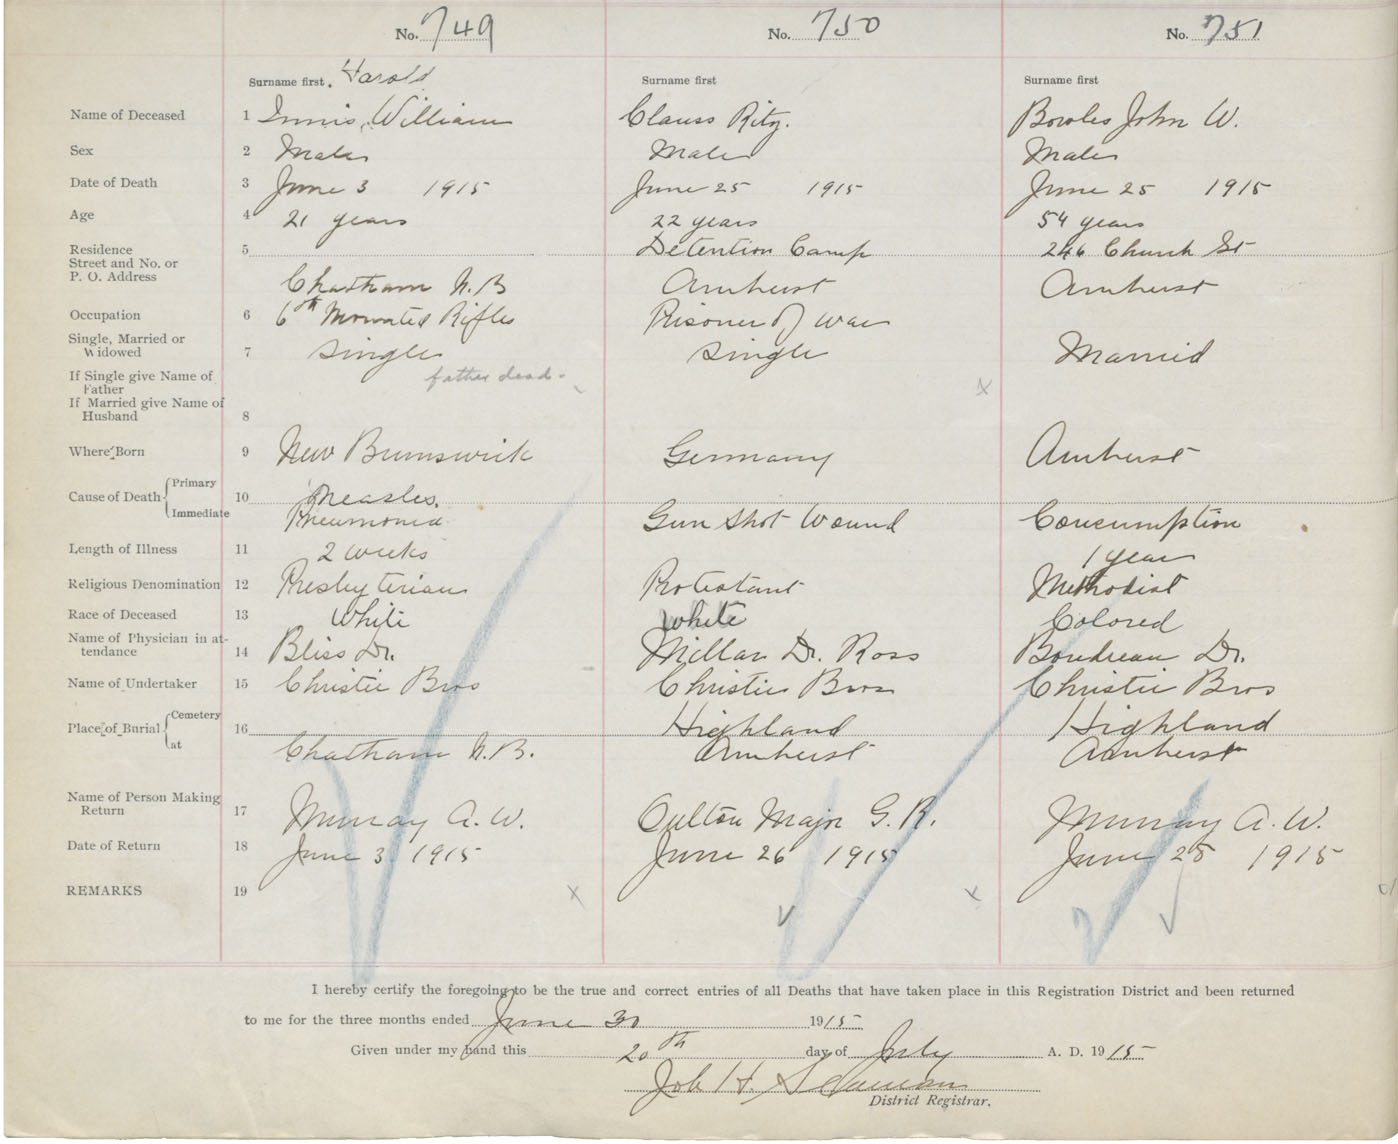 No. 749 No. 750 No. 751
Surname first. Harold Surname first Surname first
Name of Deceased 1 Innis, William Clauss Ritz. Bowles John W.
Sex 2 Male Male Male
Date of Death 3 June 3 1915 June 25 1915 June 25 1915
Age 4 21 years 22 years 54 years
Residence 5 Detention Camp 246 Church St
Street and No. or
P. O. Address Chatham N.B Amherst Amherst
Occupation 6 6th Mounted Rifles Prisoner of war
Single, Married or
Widowed 7 Single Single Married
If Single give Name of father dead - x
Father
If Married give Name of
Husband 8
Where Born 9 New Brunswick Germany Amherst
Cause of Death Primary 10 Measles.
Immediate Pneumonia Gun Shot Wound Concumption
Length of Illness 11 2 weeks 1 year
Religious Denomination 12 Presbyterian Protestant Methodist
Race of Deceased 13 White White Colored
Name of Physician in at-
tendance 14 Bliss Dr. Millar Dr. Ross Boudreau Dr.
Name of Undertaker 15 Christie Bros Christie Bros Christie Bros
Place of Burial Cemetery 16 Highland Highland
at Chatham N.B. Amherst Amherst
Name of Person Making
Return 17 Murray A.W. Oulton Major G.R. Murray A.W.
Date of Return 18 June 3 1915 June 26 1915 June 25 1915
REMARKS 19 x x
I hereby certify the foregoing to be the true and correct entries of all Deaths that have taken place in this Registration District and been returned
to me for the three months ended June 30 1915
Given under my hand this 20th day of July A. D. 1915
District Registrar.